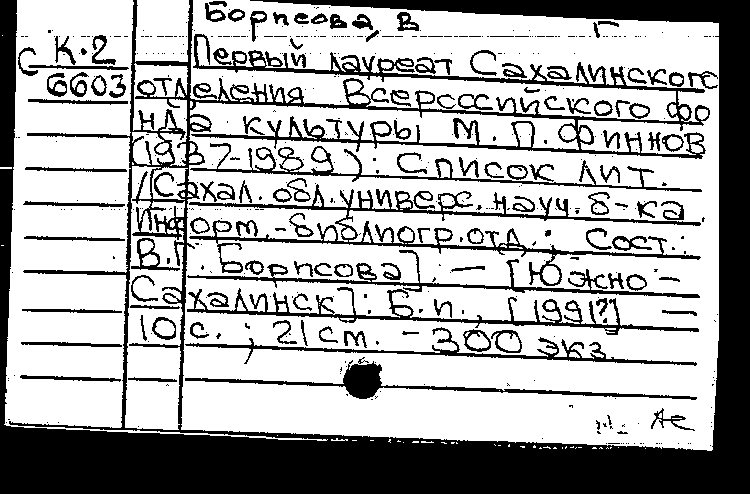 Борисова, В Г
С К-2 Первый лауреат Сахалинского
6603 отделения Всероссийского фо
нда культуры М. П. Финнов
(1937-1989): Список лит.
/[Сахал. обл. универс. науч. б-ка.
Информ.-библиогр. отд.; Сост.:
В.Г. Борисова]. — [Южно-
Сахалинск]: Б.и., [1991?] —
10 с.; 21 см. - 300 экз.